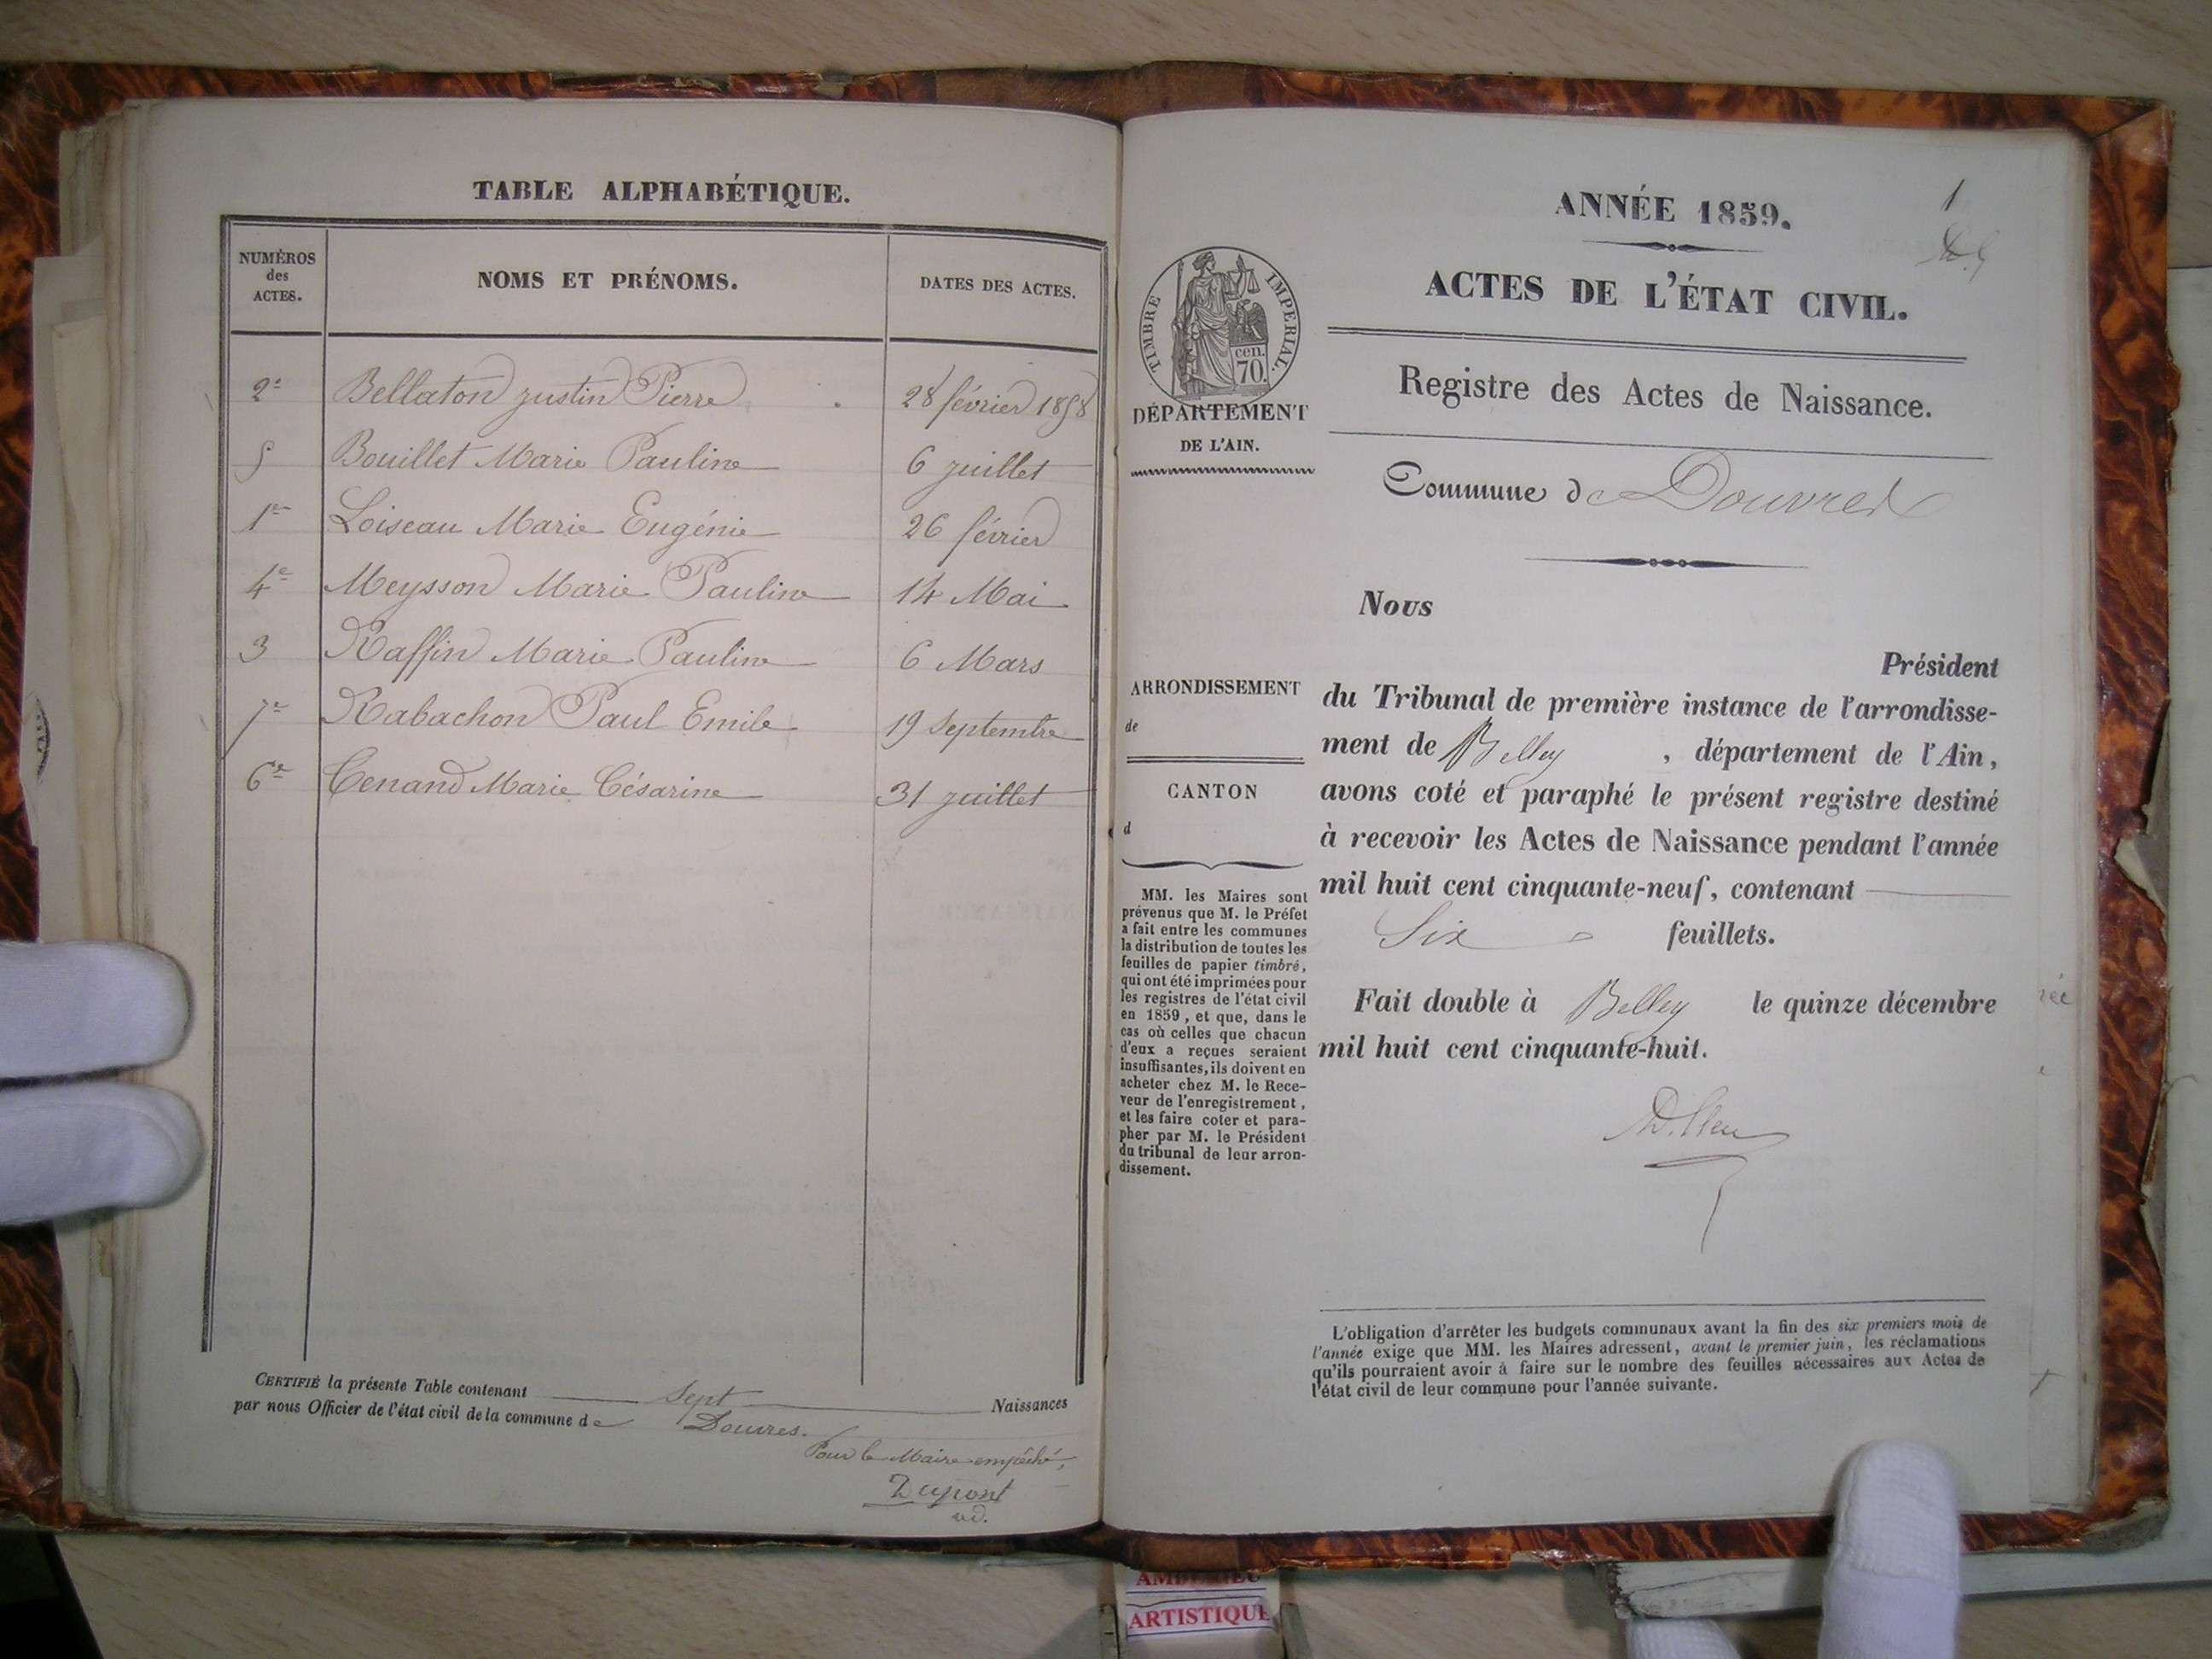 TABLE ALPHABÉTIQUE.
NUMÉROS
des
ACTES.
NOMS ET PRÉNOMS.
DATES DES ACTES.
2e Bellaton Justin Pierre 28 février 1858
5 Bouillet Marie Pauline 6 juillet
1er Loiseau Marie Eugénie 26 février
4e Meysson Marie Pauline 14 Mai
3 Raffin Marie Pauline 6 Mars
7e Rabachon Paul Emile 19 Septembre
6e Tenand Marie Césarine 31 juillet
CERTIFIÉ la présente Table contenant Sept Naissances
par nous Officier de l'état civil de la commune de Douvres.
Pour le Maire empêché,
Dupont
ad.
1
ANNÉE 1859.
ACTES DE L'ÉTAT CIVIL.
TIMBRE IMPERIAL.
cen.
70.
DÉPARTEMENT
DE L'AIN.
Registre des Actes de Naissance.
Commune de Douvres
Nous
Président
du Tribunal de première instance de l'arrondisse-
ment de Belley , département de l'Ain,
avons coté et paraphé le présent registre destiné
à recevoir les Actes de Naissance pendant l'année
mil huit cent cinquante-neuf, contenant
Six feuillets.
Fait double à Belley le quinze décembre
mil huit cent cinquante-huit.
ARRONDISSEMENT
de
CANTON
d
MM. les Maires sont
prévenus que M. le Préfet
a fait entre les communes
la distribution de toutes les
feuilles de papier timbré,
qui ont été imprimées pour
les registres de l'état civil
en 1859, et que, dans le
cas où celles que chacun
d'eux a reçues seraient
insuffisantes, ils doivent en
acheter chez M. le Rece-
veur de l'enregistrement,
et les faire coter et para-
pher par M. le Président
du tribunal de leur arron-
dissement.
L'obligation d'arrêter les budgets communaux avant la fin des six premiers mois de
l'année exige que MM. les Maires adressent, avant le premier juin, les réclamations
qu'ils pourraient avoir à faire sur le nombre des feuilles nécessaires aux Actes de
l'état civil de leur commune pour l'année suivante.
ARTISTIQUE